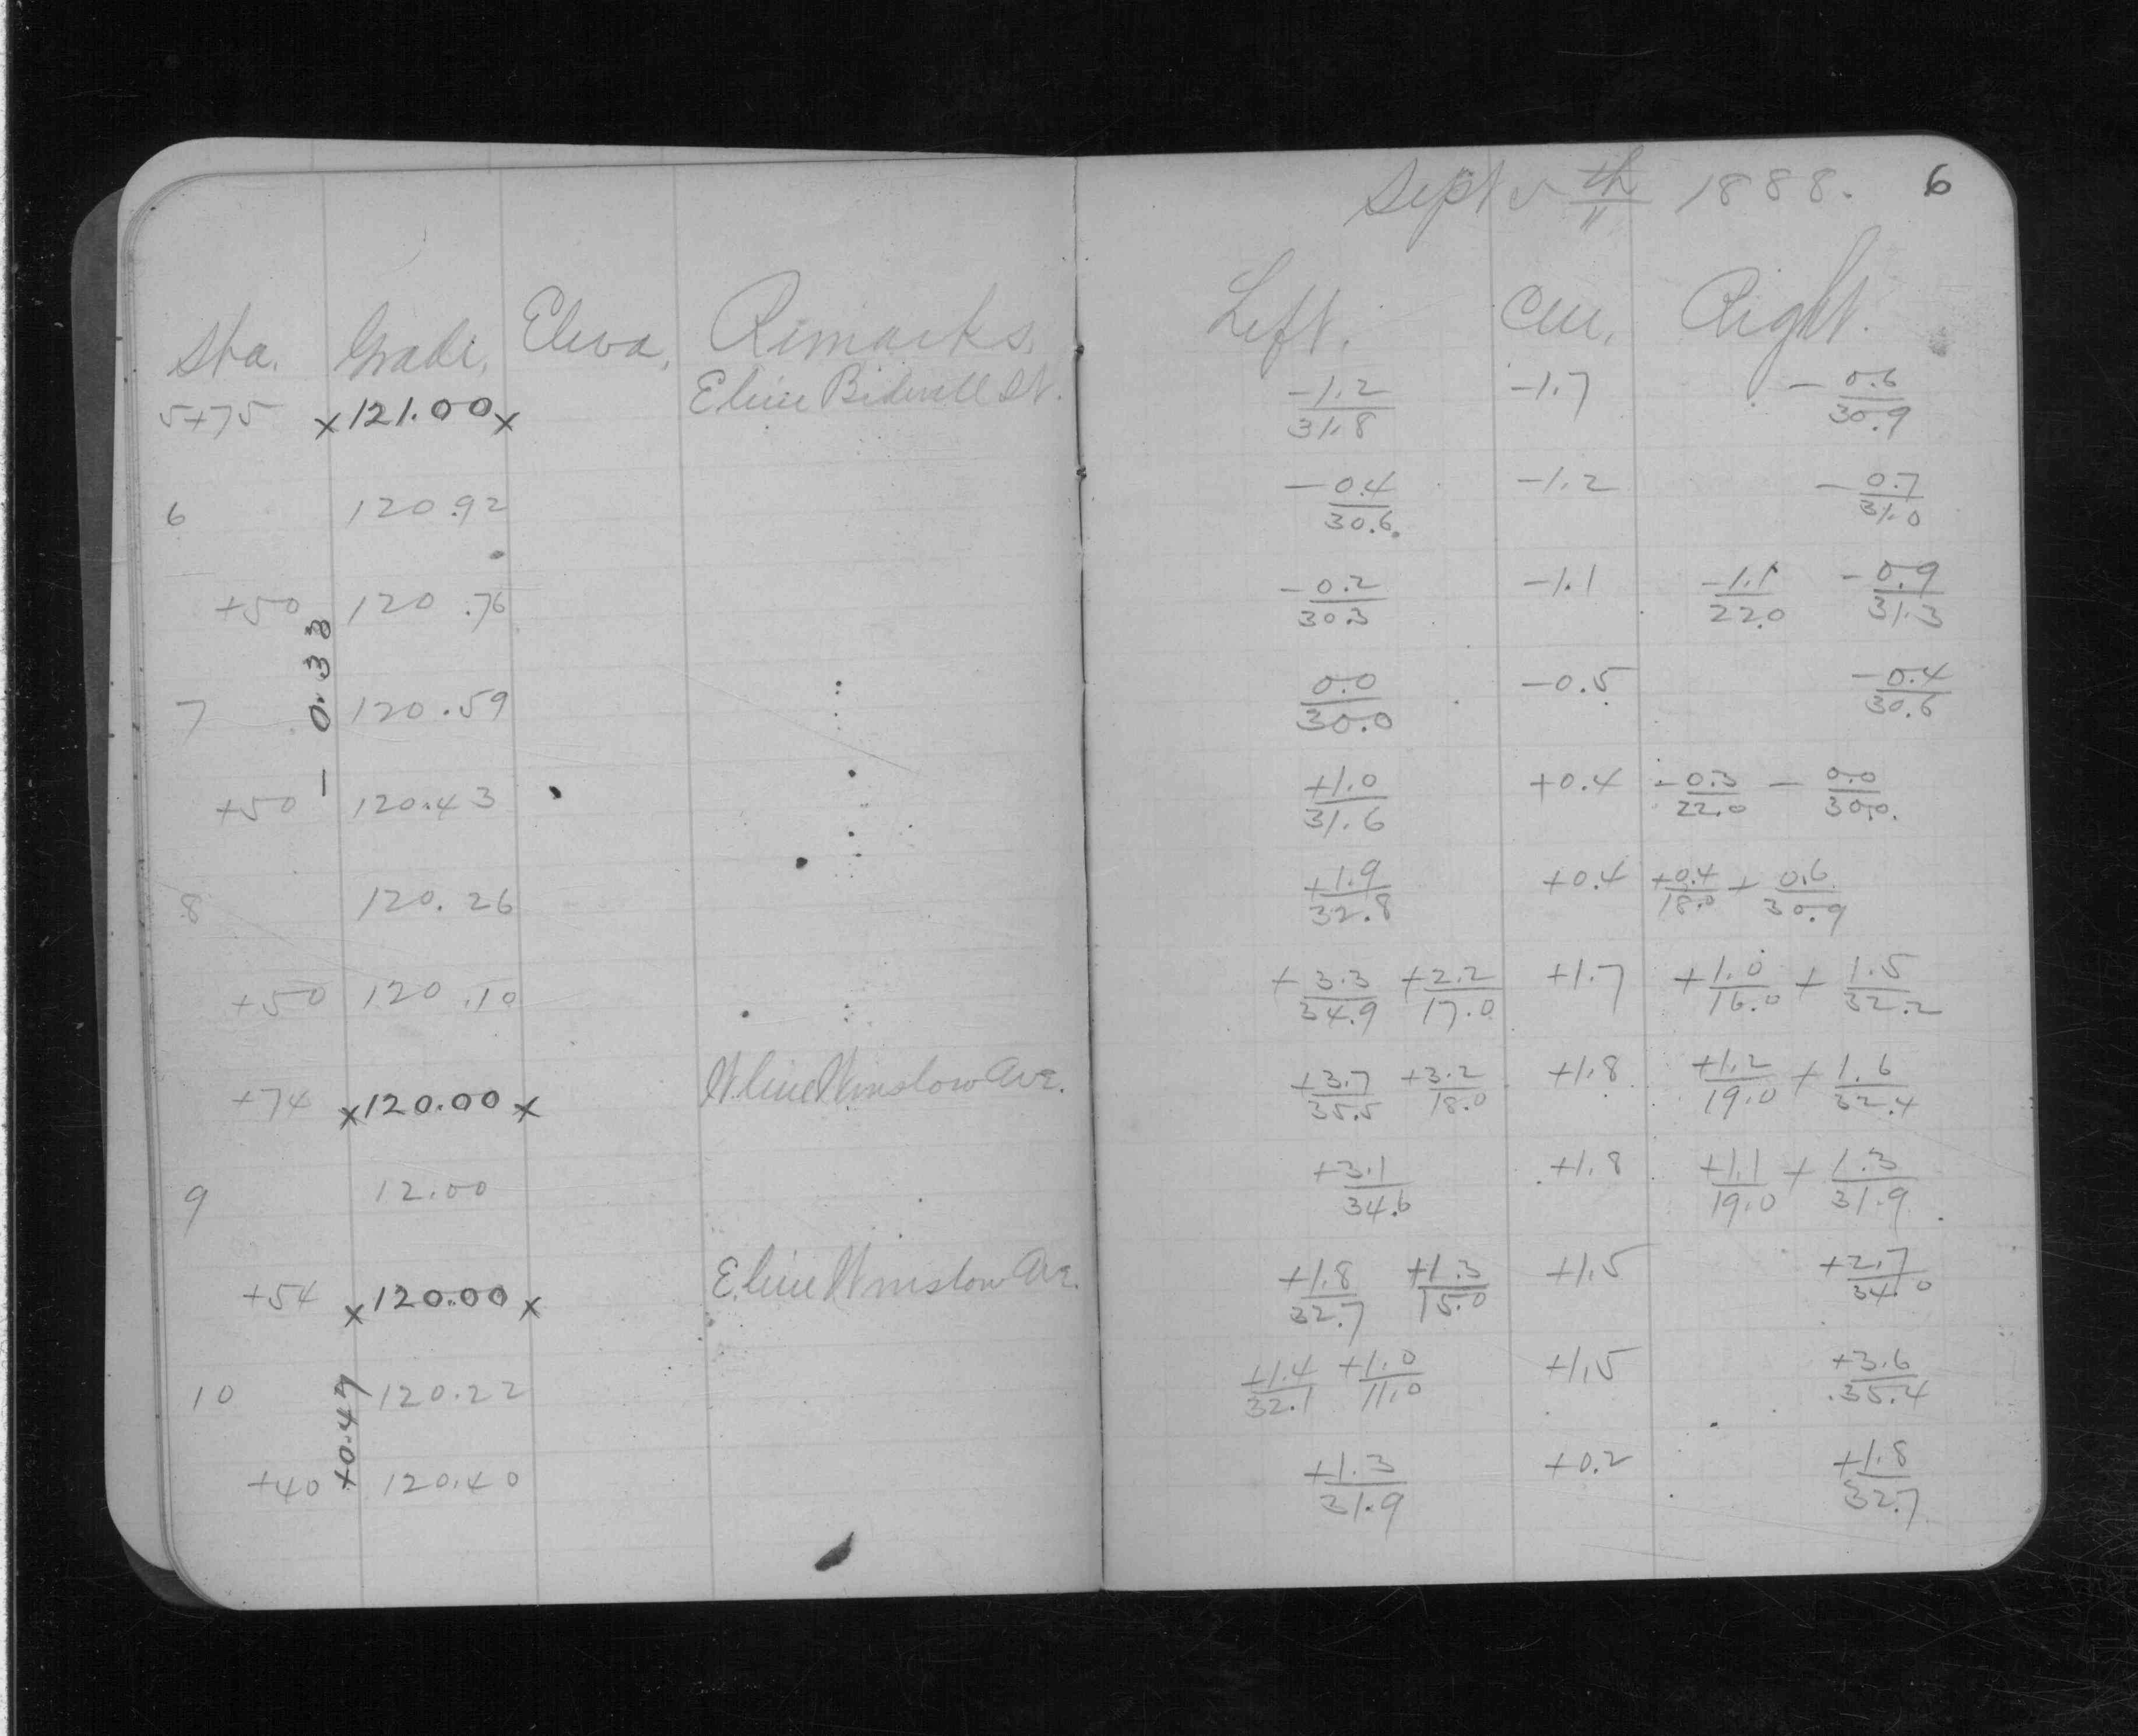 Sept 5th 1888. 6
Sta. Grade. Eleva. Remarks. Left. Cen. Right.
5+75 x121.00x E line Bidwell St. -1.2/31.8 -1.7 -0.6/30.9
6 120.92 -0.4/30.6 -1.2 -0.7/31.0
+50 120.76 -0.2/30.3 -1.1 -1.1/22.0 -0.9/31.3
- 0.33
7 120.59 0.0/30.0 -0.5 -0.4/30.6
+50 120.43 +1.0/31.6 +0.4 -0.3/22.0 - 0.0/30.0
8 120.26 +1.9/32.8 +0.4 +0.4/18.0 + 0.6/30.9
+50 120.10 +3.3/34.9 +2.2/17.0 +1.7 +1.0/16.0 + 1.5/32.2
+74 x120.00x W line Winslow Ave. +3.7/35.5 +3.2/18.0 +1.8 +1.2/19.0 + 1.6/32.4
9 12.00 +3.1/34.6 +1.8 +1.1/19.0 + 1.3/31.9
+54 x120.00x E line Winslow Ave. +1.8/32.7 +1.3/15.0 +1.5 +2.7/34.0
10 120.22 +1.4/32.1 +1.0/11.0 +1.5 +3.6/35.4
+0.47
+40 120.40 +1.3/31.9 +0.2 +1.8/32.7